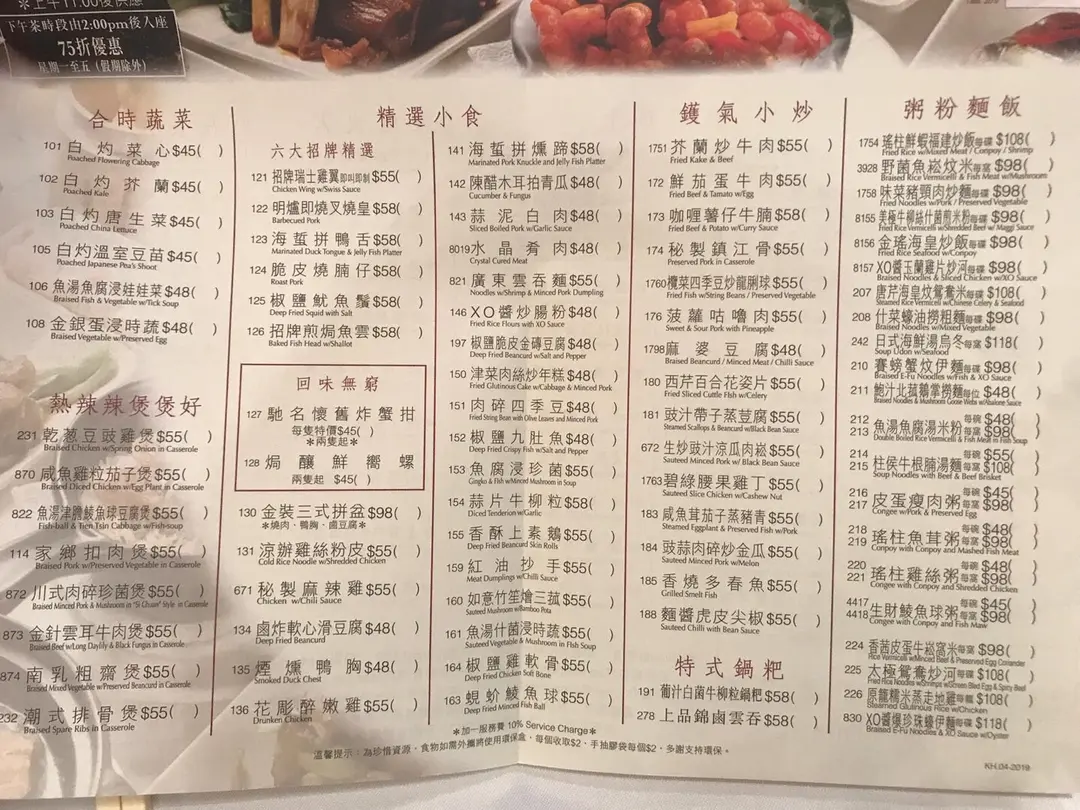 ※上午11:00後供應
下午茶時段由2:00pm後入座
75折優惠
星期一至五（假期除外）
合時蔬菜
101 白灼菜心 $45( )
Poached Flowering Cabbage
102 白灼芥蘭 $45( )
Poached Kale
103 白灼唐生菜 $45( )
Poached China Lettuce
105 白灼溫室豆苗 $45( )
Poached Japanese Pea's Shoot
106 魚湯魚腐浸娃娃菜 $48( )
Braised Fish & Vegetable w/Tick Soup
108 金銀蛋浸時蔬 $48( )
Braised Vegetable w/Preserved Egg
熱辣辣煲煲好
231 乾葱豆豉雞煲 $55( )
Braised Chicken w/Spring Onion in Casserole
870 咸魚雞粒茄子煲 $55( )
Braised Diced Chicken w/Egg Plant in Casserole
822 魚湯津膽鯪魚球豆腐煲 $55( )
Fish-ball & Tien Tsin Cabbage w/Fish-soup
114 家鄉扣肉煲 $55( )
Braised Pork w/Preserved Vegetable in Casserole
872 川式肉碎珍菌煲 $55( )
Braised Minced Pork & Mushroom in "Si Chuan" Style in Casserole
873 金針雲耳牛肉煲 $55( )
Braised Beef w/Long Daylily & Black Fungus in Casserole
874 南乳粗齋煲 $55( )
Braised Mixed Vegetable w/Preserved Beancurd in Casserole
232 潮式排骨煲 $55( )
Braised Spare Ribs in Casserole
精選小食
六大招牌精選
121 招牌瑞士雞翼即叫即制 $55( )
Chicken Wing w/Swiss Sauce
122 明爐即燒叉燒皇 $58( )
Barbecued Pork
123 海蜇拼鴨舌 $58( )
Marinated Duck Tongue & Jelly Fish Platter
124 脆皮燒腩仔 $58( )
Roast Pork
125 椒鹽魷魚鬚 $58( )
Deep Fried Squid with Salt
126 招牌煎焗魚雲 $58( )
Baked Fish Head w/Shallot
回味無窮
127 馳名懷舊炸蟹拑
每隻特價$45( )
＊兩隻起＊
128 焗釀鮮嚮螺
兩隻起 $45( )
130 金裝三式拼盆 $98( )
＊燒肉．鴨胸．鹵豆腐＊
131 涼辦雞絲粉皮 $55( )
Cold Rice Noodle w/Shredded Chicken
671 秘製麻辣雞 $55( )
Chicken w/Chili Sauce
134 鹵炸軟心滑豆腐 $48( )
Deep Fried Beancurd
135 煙燻鴨胸 $48( )
Smoked Duck Chest
136 花彫醉嫩雞 $55( )
Drunken Chicken
141 海蜇拼燻蹄 $58( )
Marinated Pork Knuckle and Jelly Fish Platter
142 陳醋木耳拍青瓜 $48( )
Cucumber & Fungus
143 蒜泥白肉 $48( )
Sliced Boiled Pork w/Garlic Sauce
8019 水晶肴肉 $48( )
Crystal Cured Meat
821 廣東雲吞麵 $55( )
Noodles w/Shrimp & Minced Pork Dumpling
146 XO醬炒腸粉 $48( )
Fried Rice Flours with XO Sauce
197 椒鹽脆皮金磚豆腐 $48( )
Deep Fried Beancurd w/Salt and Pepper
150 津菜肉絲炒年糕 $48( )
Fried Glutinous Cake w/Cabbage & Minced Pork
151 肉碎四季豆 $48( )
Fried String Bean with Olive Leaves and Minced Pork
152 椒鹽九肚魚 $48( )
Deep Fried Crispy Fish w/Salt and Pepper
153 魚腐浸珍菌 $55( )
Gingko & Fish w/Minced Mushroom in Soup
154 蒜片牛柳粒 $58( )
Diced Tenderion w/Garlic
155 香酥上素鵝 $55( )
Deep Fried Beancurd Skin Rolls
159 紅油抄手 $55( )
Meat Dumplings w/Chilli Sauce
160 如意竹笙燴三菰 $55( )
Sauteed Mushroom w/Bamboo Pota
161 魚湯什菌浸時蔬 $55( )
Sauteed Vegetable & Mushroom in Fish Soup
164 椒鹽雞軟骨 $55( )
Deep Fried Chicken Soft Bone
163 蜆蚧鯪魚球 $55( )
Deep Fried Minced Fish Ball
鑊氣小炒
1751 芥蘭炒牛肉 $55( )
Fried Kake & Beef
172 鮮茄蛋牛肉 $55( )
Fried Beef & Tamato w/Egg
173 咖喱薯仔牛腩 $58( )
Fried Beef & Potato w/Curry Sauce
174 秘製鎮江骨 $55( )
Preserved Pork in Casserole
1760 欖菜四季豆炒龍脷球 $55( )
Fried Fish w/String Beans / Preserved Vegetable
176 菠蘿咕嚕肉 $55( )
Sweet & Sour Pork with Pineapple
1798 麻婆豆腐 $48( )
Braised Beancurd / Minced Meat / Chilli Sauce
180 西芹百合花姿片 $55( )
Fried Sliced Cuttle Flsh w/Celery
181 豉汁帶子蒸荳腐 $55( )
Steamed Scallops & Beancurd w/Black Bean Sauce
672 生炒豉汁涼瓜肉崧 $55( )
Sauteed Minced Pork w/ Black Bean Sauce
1763 碧綠腰果雞丁 $55( )
Sauteed Slice Chicken w/Cashew Nut
183 咸魚茸茄子蒸豬青 $55( )
Steamed Eggplant & Preserved Fish w/Pork
184 豉蒜肉碎炒金瓜 $55( )
Sauteed Minced Pork w/Melon
185 香燒多春魚 $55( )
Grilled Smelt Fish
188 麵醬虎皮尖椒 $55( )
Sauteed Chilli with Bean Sauce
特式鍋粑
191 葡汁白菌牛柳粒鍋粑 $58( )
278 上品錦鹵雲吞 $58( )
粥粉麵飯
1754 瑤柱鮮蝦福建炒飯每碟 $108( )
Fried Rice w/Mixed Meat / Conpoy / Shrimp
3928 野菌魚崧炆米每窩 $98( )
Braised Rice Vermicelli & Fish Meat w/Mushroom
1758 味菜豬頸肉炒麵每碟 $98( )
Fried Noodles w/Pork / Preserved Vegetable
8155 美極牛柳絲什菌煎米粉每碟 $98( )
Fried Rice Vermicelli w/Shredded Beef w/ Maggi Sauce
8156 金瑤海皇炒飯每碟 $98( )
Fried Rice Seafood w/Conpoy
8157 XO醬玉蘭雞片炒河每碟 $98( )
Braised Noodles & Sliced Chicken w/XO Sauce
207 唐芹海皇炆鴛鴦米每窩 $108( )
Steamed Rice Vermicelli w/Chinese Celery & Seafood
208 什菜蠔油撈粗麵每碟 $98( )
Braised Noodles w/Mixed Vegetable
242 日式海鮮湯烏冬每窩 $118( )
Soup Udon w/Seafood
210 賽螃蟹炆伊麵每碟 $98( )
Braised E-Fu Noodles w/Fish & XO Sauce
211 鮑汁北菰鵝掌撈麵每位 $48( )
Braised Noodles & Mushroom Goose Webs w/Abalone Sauce
212 每碗 $48( )
213 魚湯魚腐湯米粉每窩 $98( )
Double Boiled Rice Vermicelli & Fish Meat in Fish Soup
214 每碗 $55( )
215 柱侯牛根腩湯麵每窩 $108( )
Soup Noodles with Beef & Beef Brisket
216 每碗 $45( )
217 皮蛋瘦肉粥每窩 $98( )
Congee w/Pork & Preserved Egg
218 每碗 $48( )
219 瑤柱魚茸粥每窩 $98( )
Conpoy with Conpoy and Mashed Fish Meat
220 每碗 $48( )
221 瑤柱雞絲粥每窩 $98( )
Congee with Conpoy and Shredded Chicken
4417 每碗 $45( )
4418 生財鯪魚球粥每窩 $98( )
Congee with Conpoy and Fish Maw
224 香茜皮蛋牛崧窩米每窩 $98( )
Rice Vermicelli w/Minced Beef & Preserved Egg Coriander
225 太極鴛鴦炒河每碟 $108( )
226 原籠糯米蒸走地雞每籠 $108( )
Steamed Glutinous Rice w/Chicken
830 XO醬爆珍珠蠔伊麵每碟 $118( )
Braised E-Fu Noodles & XO Sauce w/Oyster
＊加一服務費 10% Service Charge＊
溫馨提示：為珍惜資源，食物如需外攜將使用環保盒，每個收取$2，手抽膠袋每個$2，多謝支持環保。
KH.04-2019